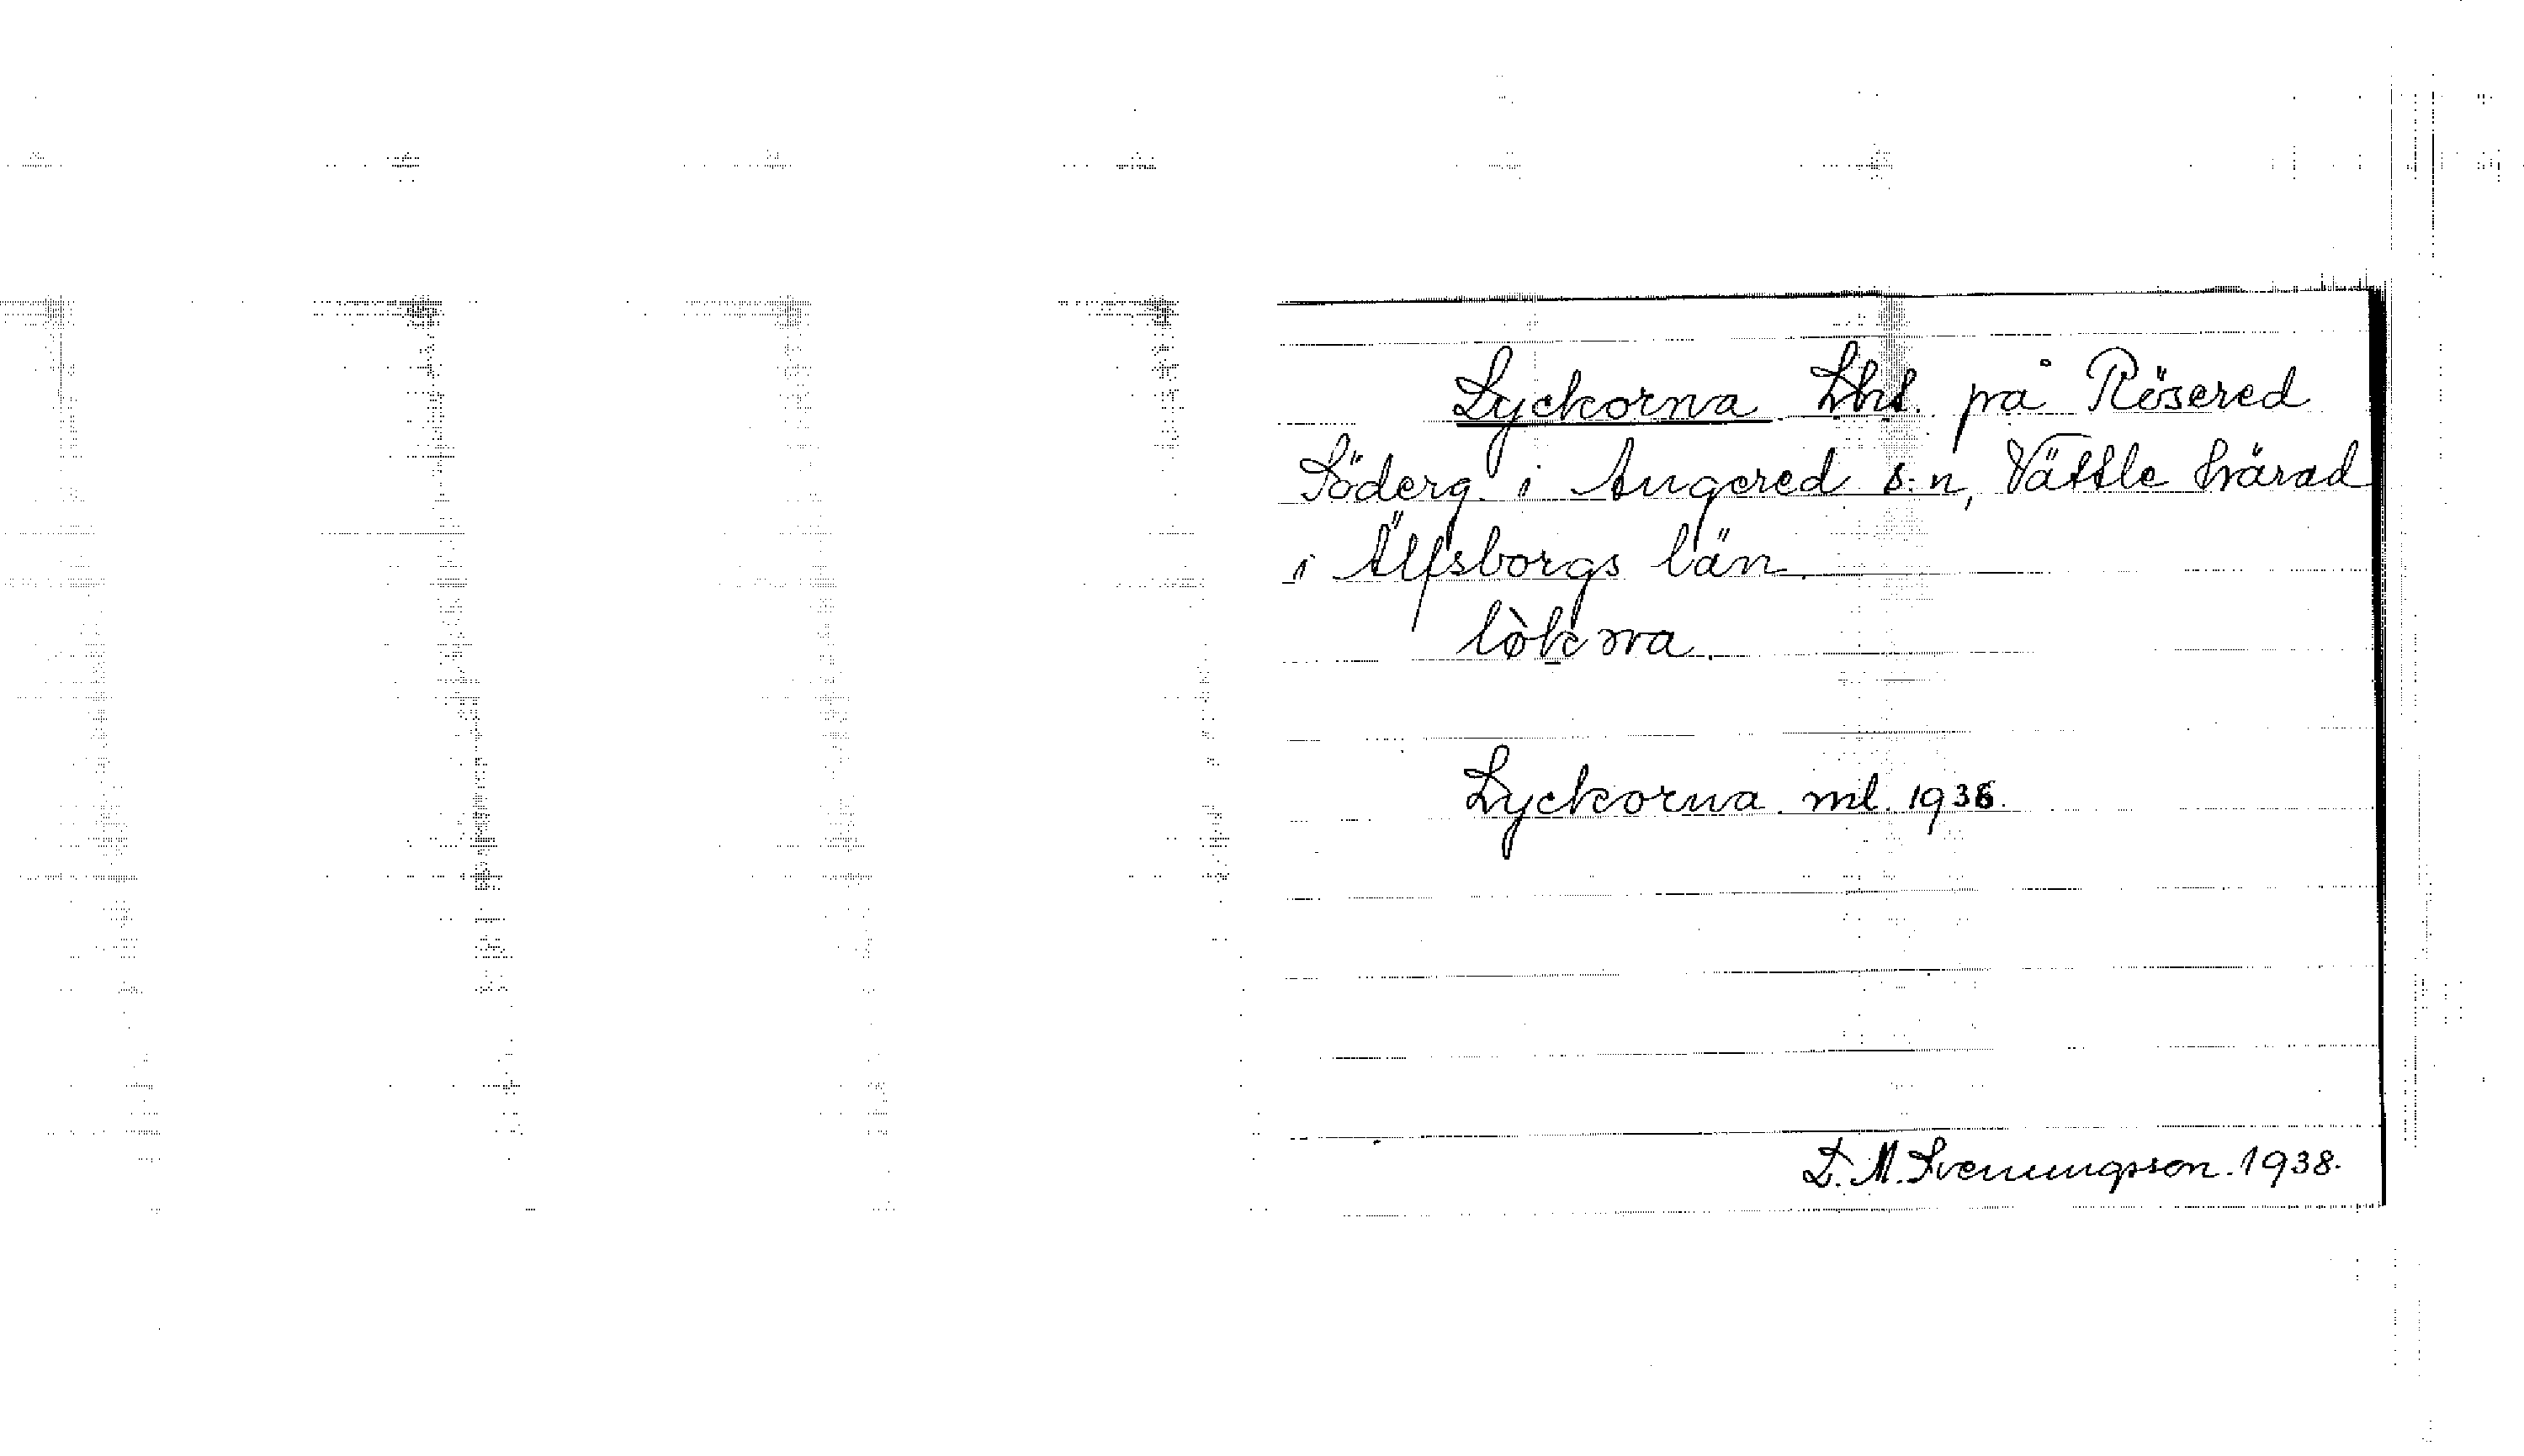 Lyckorna Lht. på Rösered
Söderg. i Angered s.n, Vättle härad
i Älfsborgs län.
lø̀kɔrna.
Lyckorna ml. 1938.
D. M. Svenungsson. 1938.